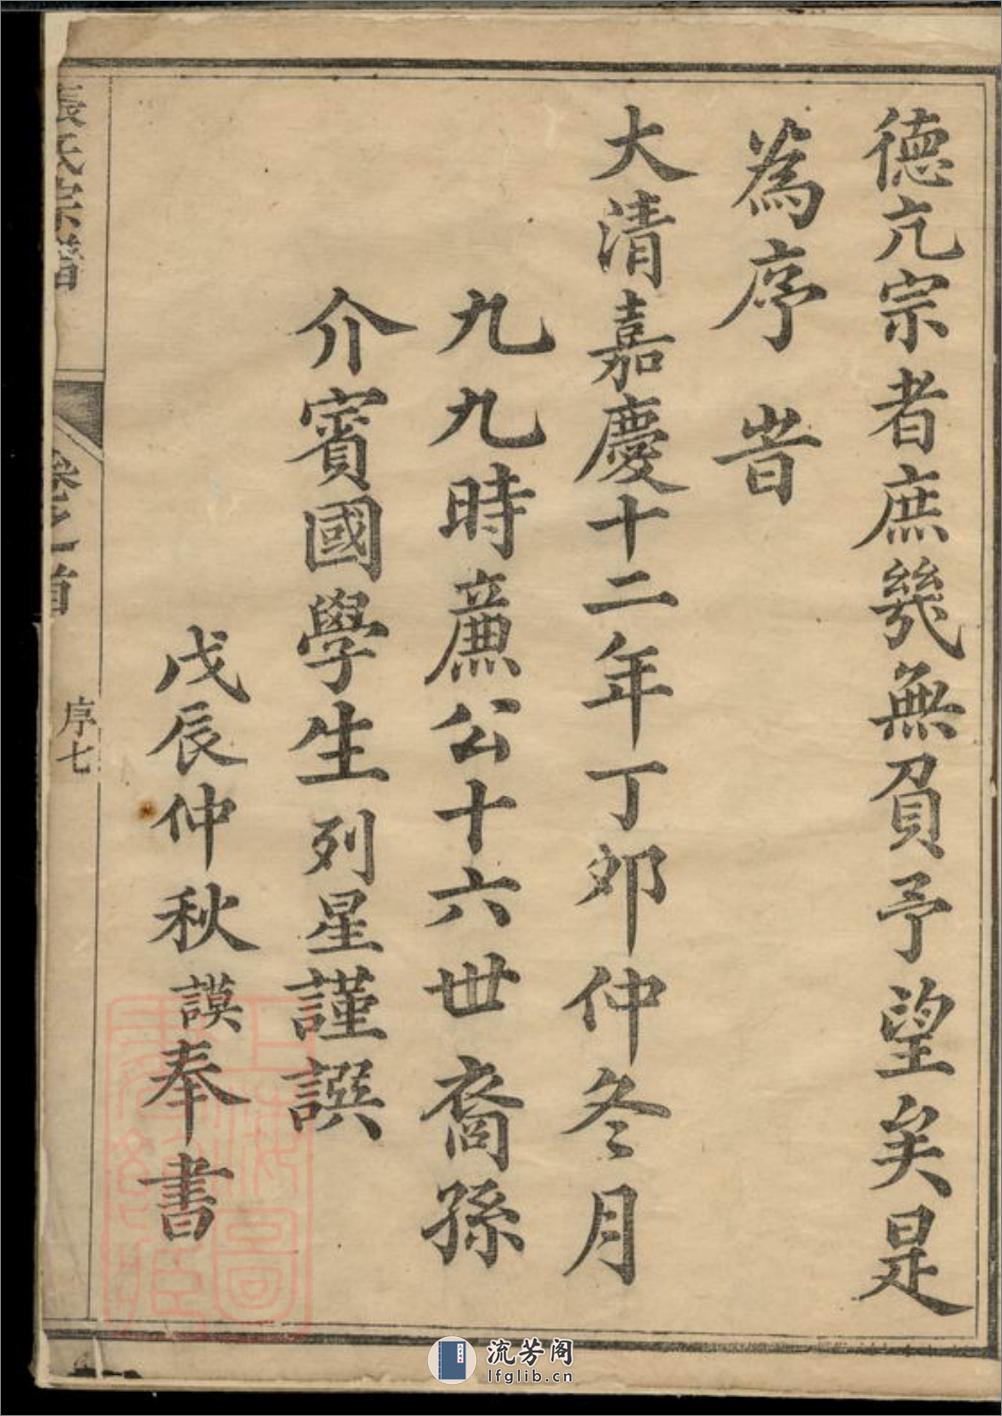 德亢宗者庶幾無負予望矣是
為序旹
大清嘉慶十二年丁卯仲冬月
九九時薦公十六世裔孫
介賓國學生列星謹譔
戊辰仲秋謨奉書
張氏宗譜
卷首
序七
流芳阁
lfglib.cn